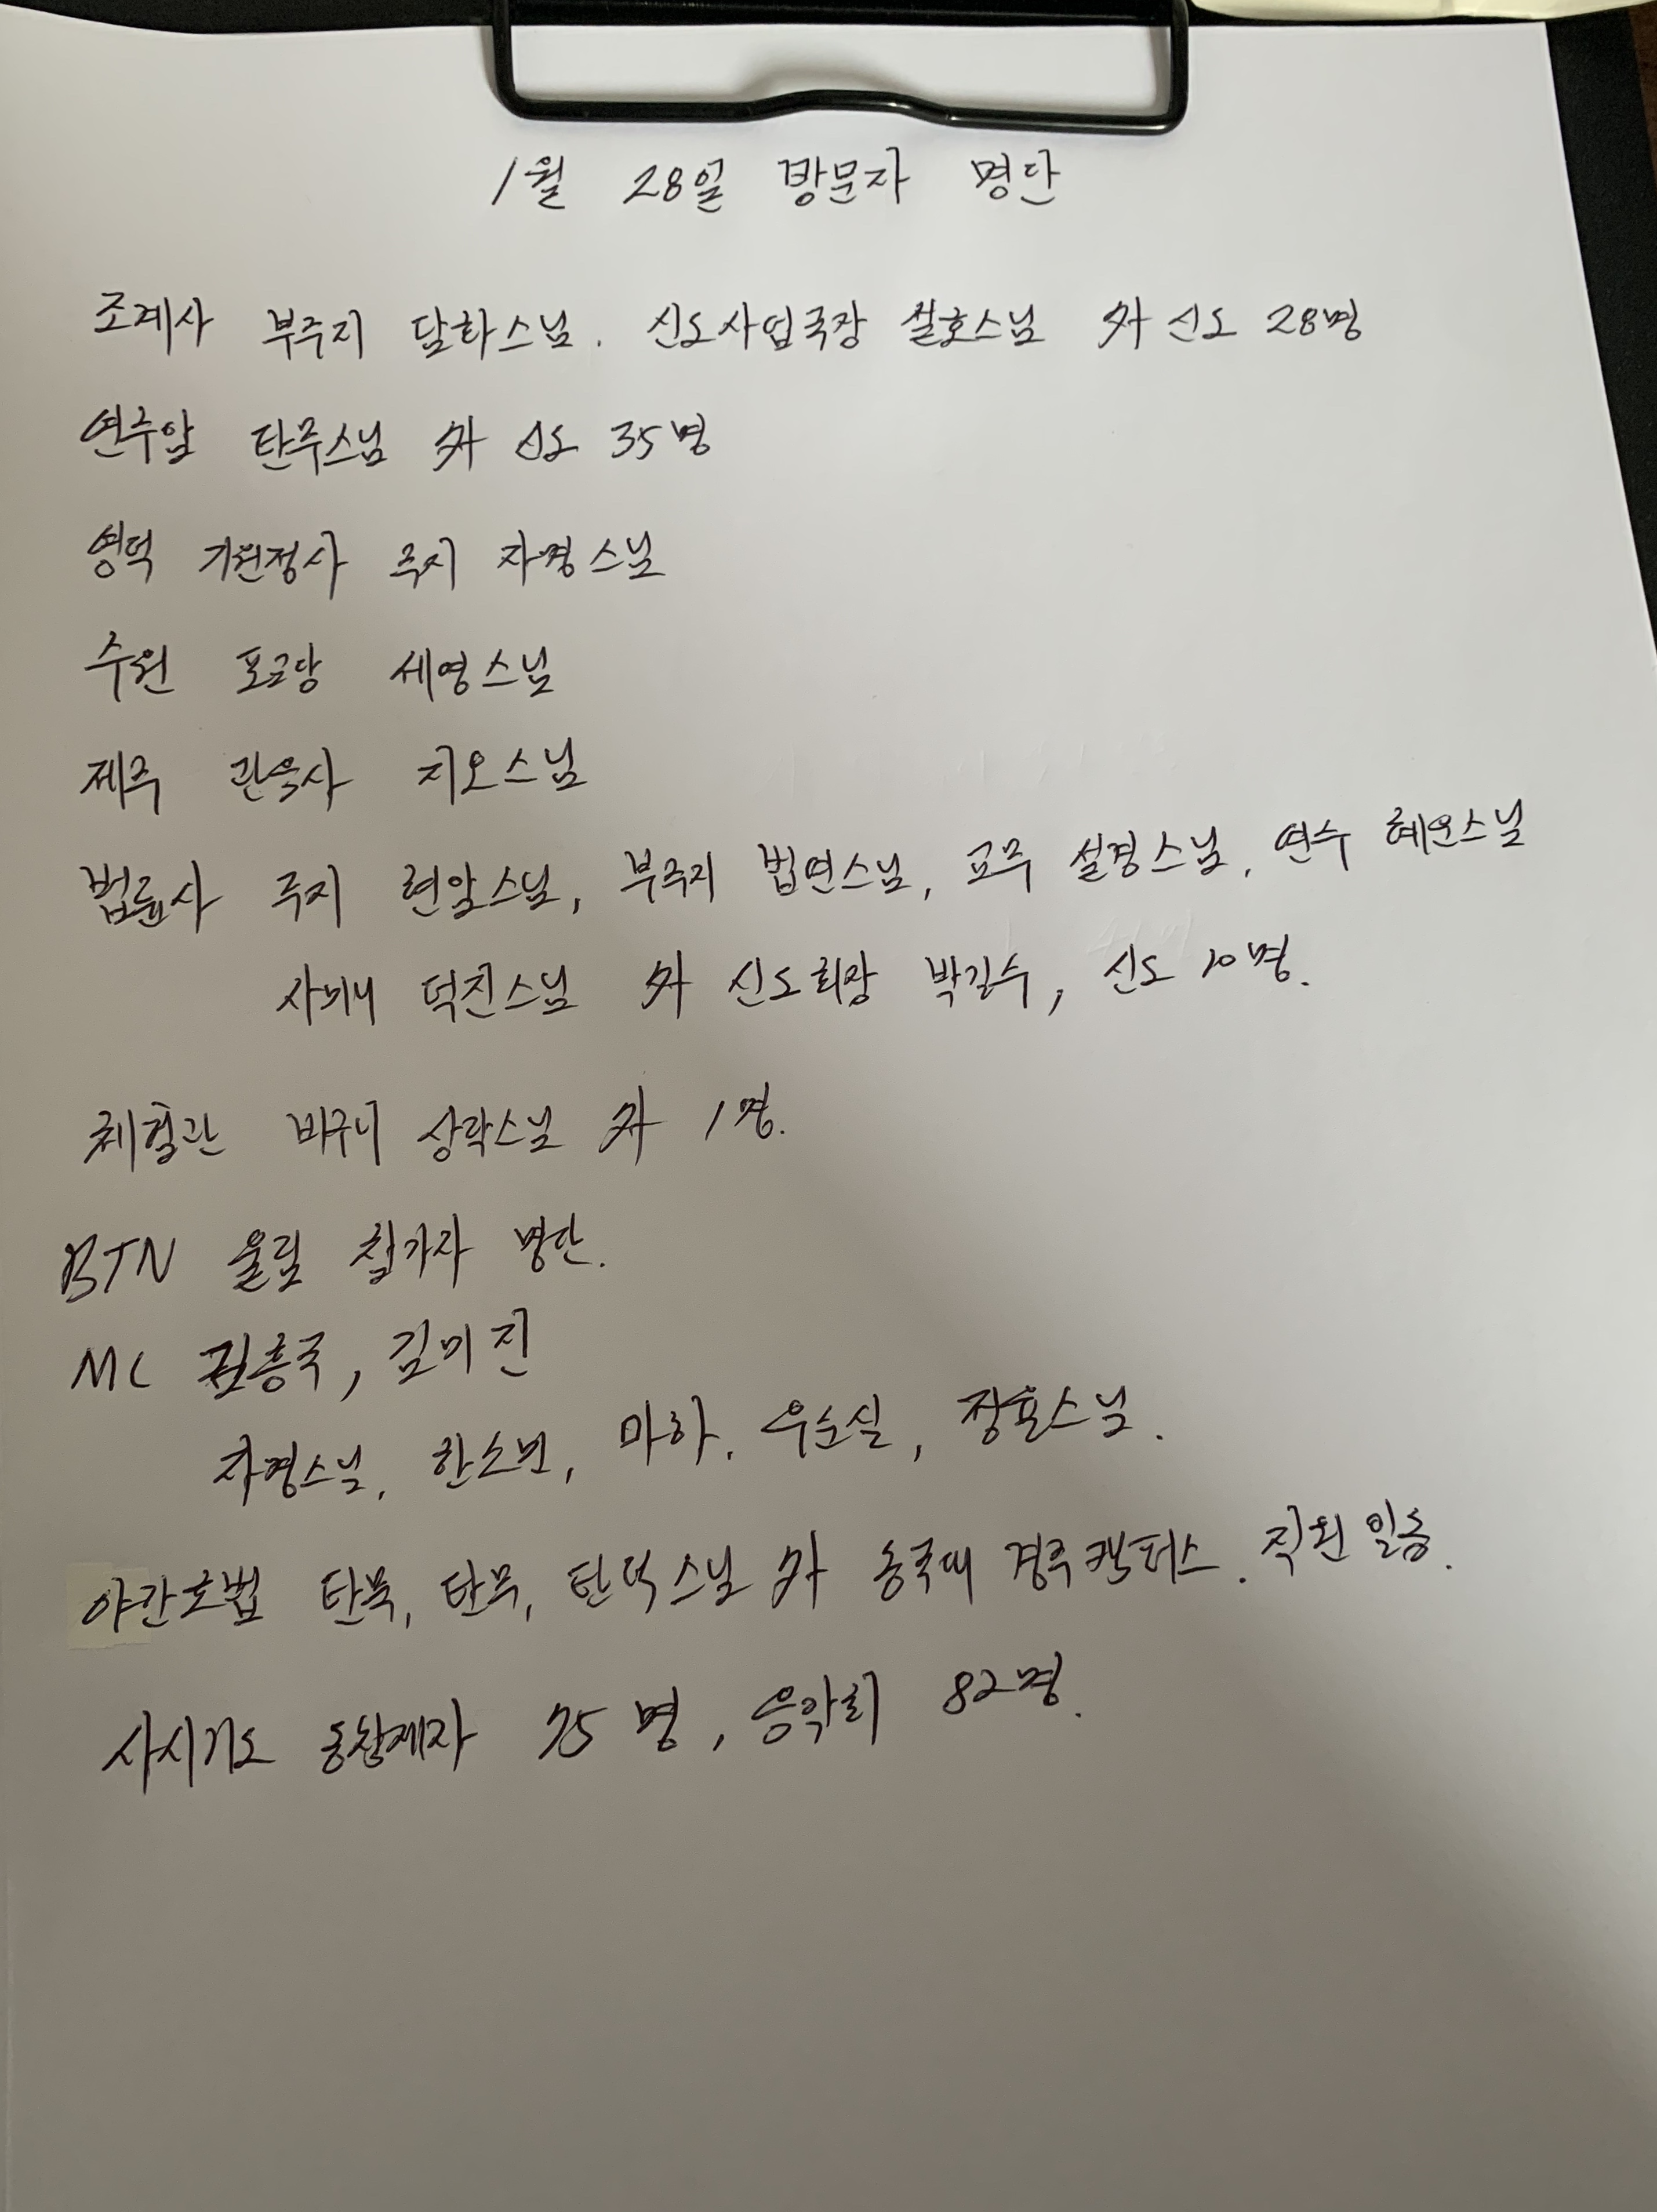 1월 28일 방문자 명단
조계사 부주지 담화스님. 신도사업국장 설호스님 外 신도 28명
연주암 탄무스님 外 신도 35명
영덕 기원정사 주지 자경스님
수원 포교당 세영스님
제주 관음사 지오스님
법륜사 주지 현암스님, 부주지 법연스님, 교무 설경스님, 연수 혜원스님
사미니 덕진스님 外 신도회장 박길수, 신도 10명.
체험관 비구니 상락스님 外 1명.
BTN 울림 참가자 명단.
MC 김흥국, 김미진
자명스님, 한소민, 마하, 우순실, 장효스님.
야간호법 탄묵, 탄무, 탄덕스님 外 동국대 경주캠퍼스. 직원 일동.
사시기도 동참제자 75명, 음악회 82명.